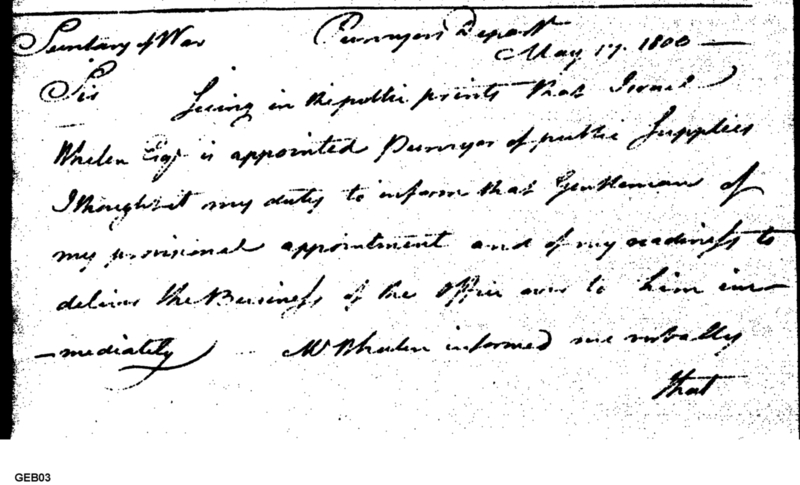 Secretary of War
Purveyors Departt
May 17. 1800 —
Sir Seeing in the public prints that Israel
Whelen Esqr is appointed Purveyor of public Supplies
I thought it my duty to inform that Gentleman of
my provisional appointment and of my readiness to
deliver the Business of the Office over to him im-
-mediately Mr Whelen informed me verbally
that
GEB03